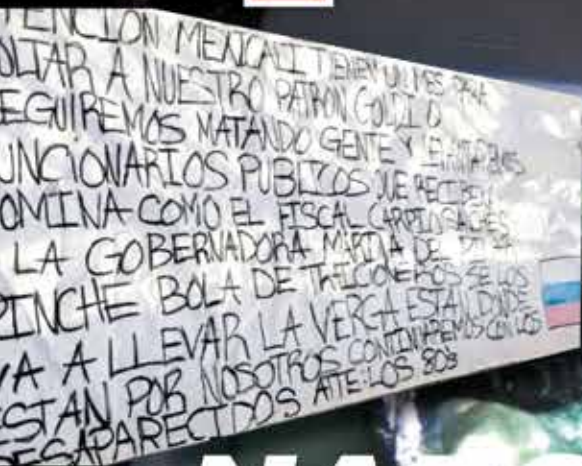 TENCION MEXICALI TIENEN UN MES PARA
OLTAR A NUESTRO PATRON O
EGUIREMOS MATANDO GENTE Y
UNCIONARIOS PUBLICOS QUE RECIBEN
OMINA COMO EL FISCAL CARPIO SANCHES
LA GOBERNADORA MARINA DEL
PINCHE BOLA DE SE LOS
VA A LLEVAR LA VERGA ESTAN DONDE
ESTAN POR NOSOTROS CONTINUAREMOS CON LOS
DESAPARECIDOS ATTE: LOS